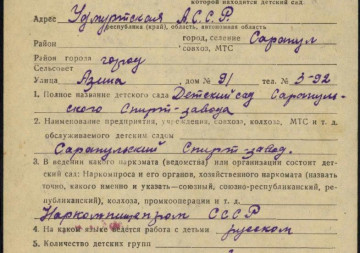 которой находится детский сад.
Адрес Удмуртская АССР
республика (край), область, автономная область
Район город, селение Сарапул
совхоз, МТС
Район города город
Сельсовет
Улица Азина дом № 91 тел. 3-92
1. Полное название детского сада Детский сад Сарапуль-
ского Спирт-завода
2. Наименование предприятия, учреждения, совхоза, колхоза, МТС и т. д.
обслуживаемого детским садом
Сарапульский Спирт-завод.
3. В ведении какого наркомата (ведомства) или организации состоит дет-
ский сад: Наркомпроса и его органов, хозяйственного наркомата (назвать
точно, какого именно и указать—союзный, союзно-республиканский, рес-
публиканский), колхоза, промкооперации и т. д.
Наркомпищепром СССР
4. На каком языке ведется работа с детьми русском
5. Количество детских групп